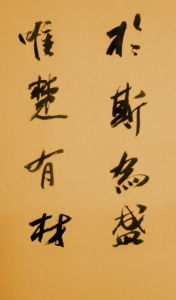 唯楚有材
於斯為盛